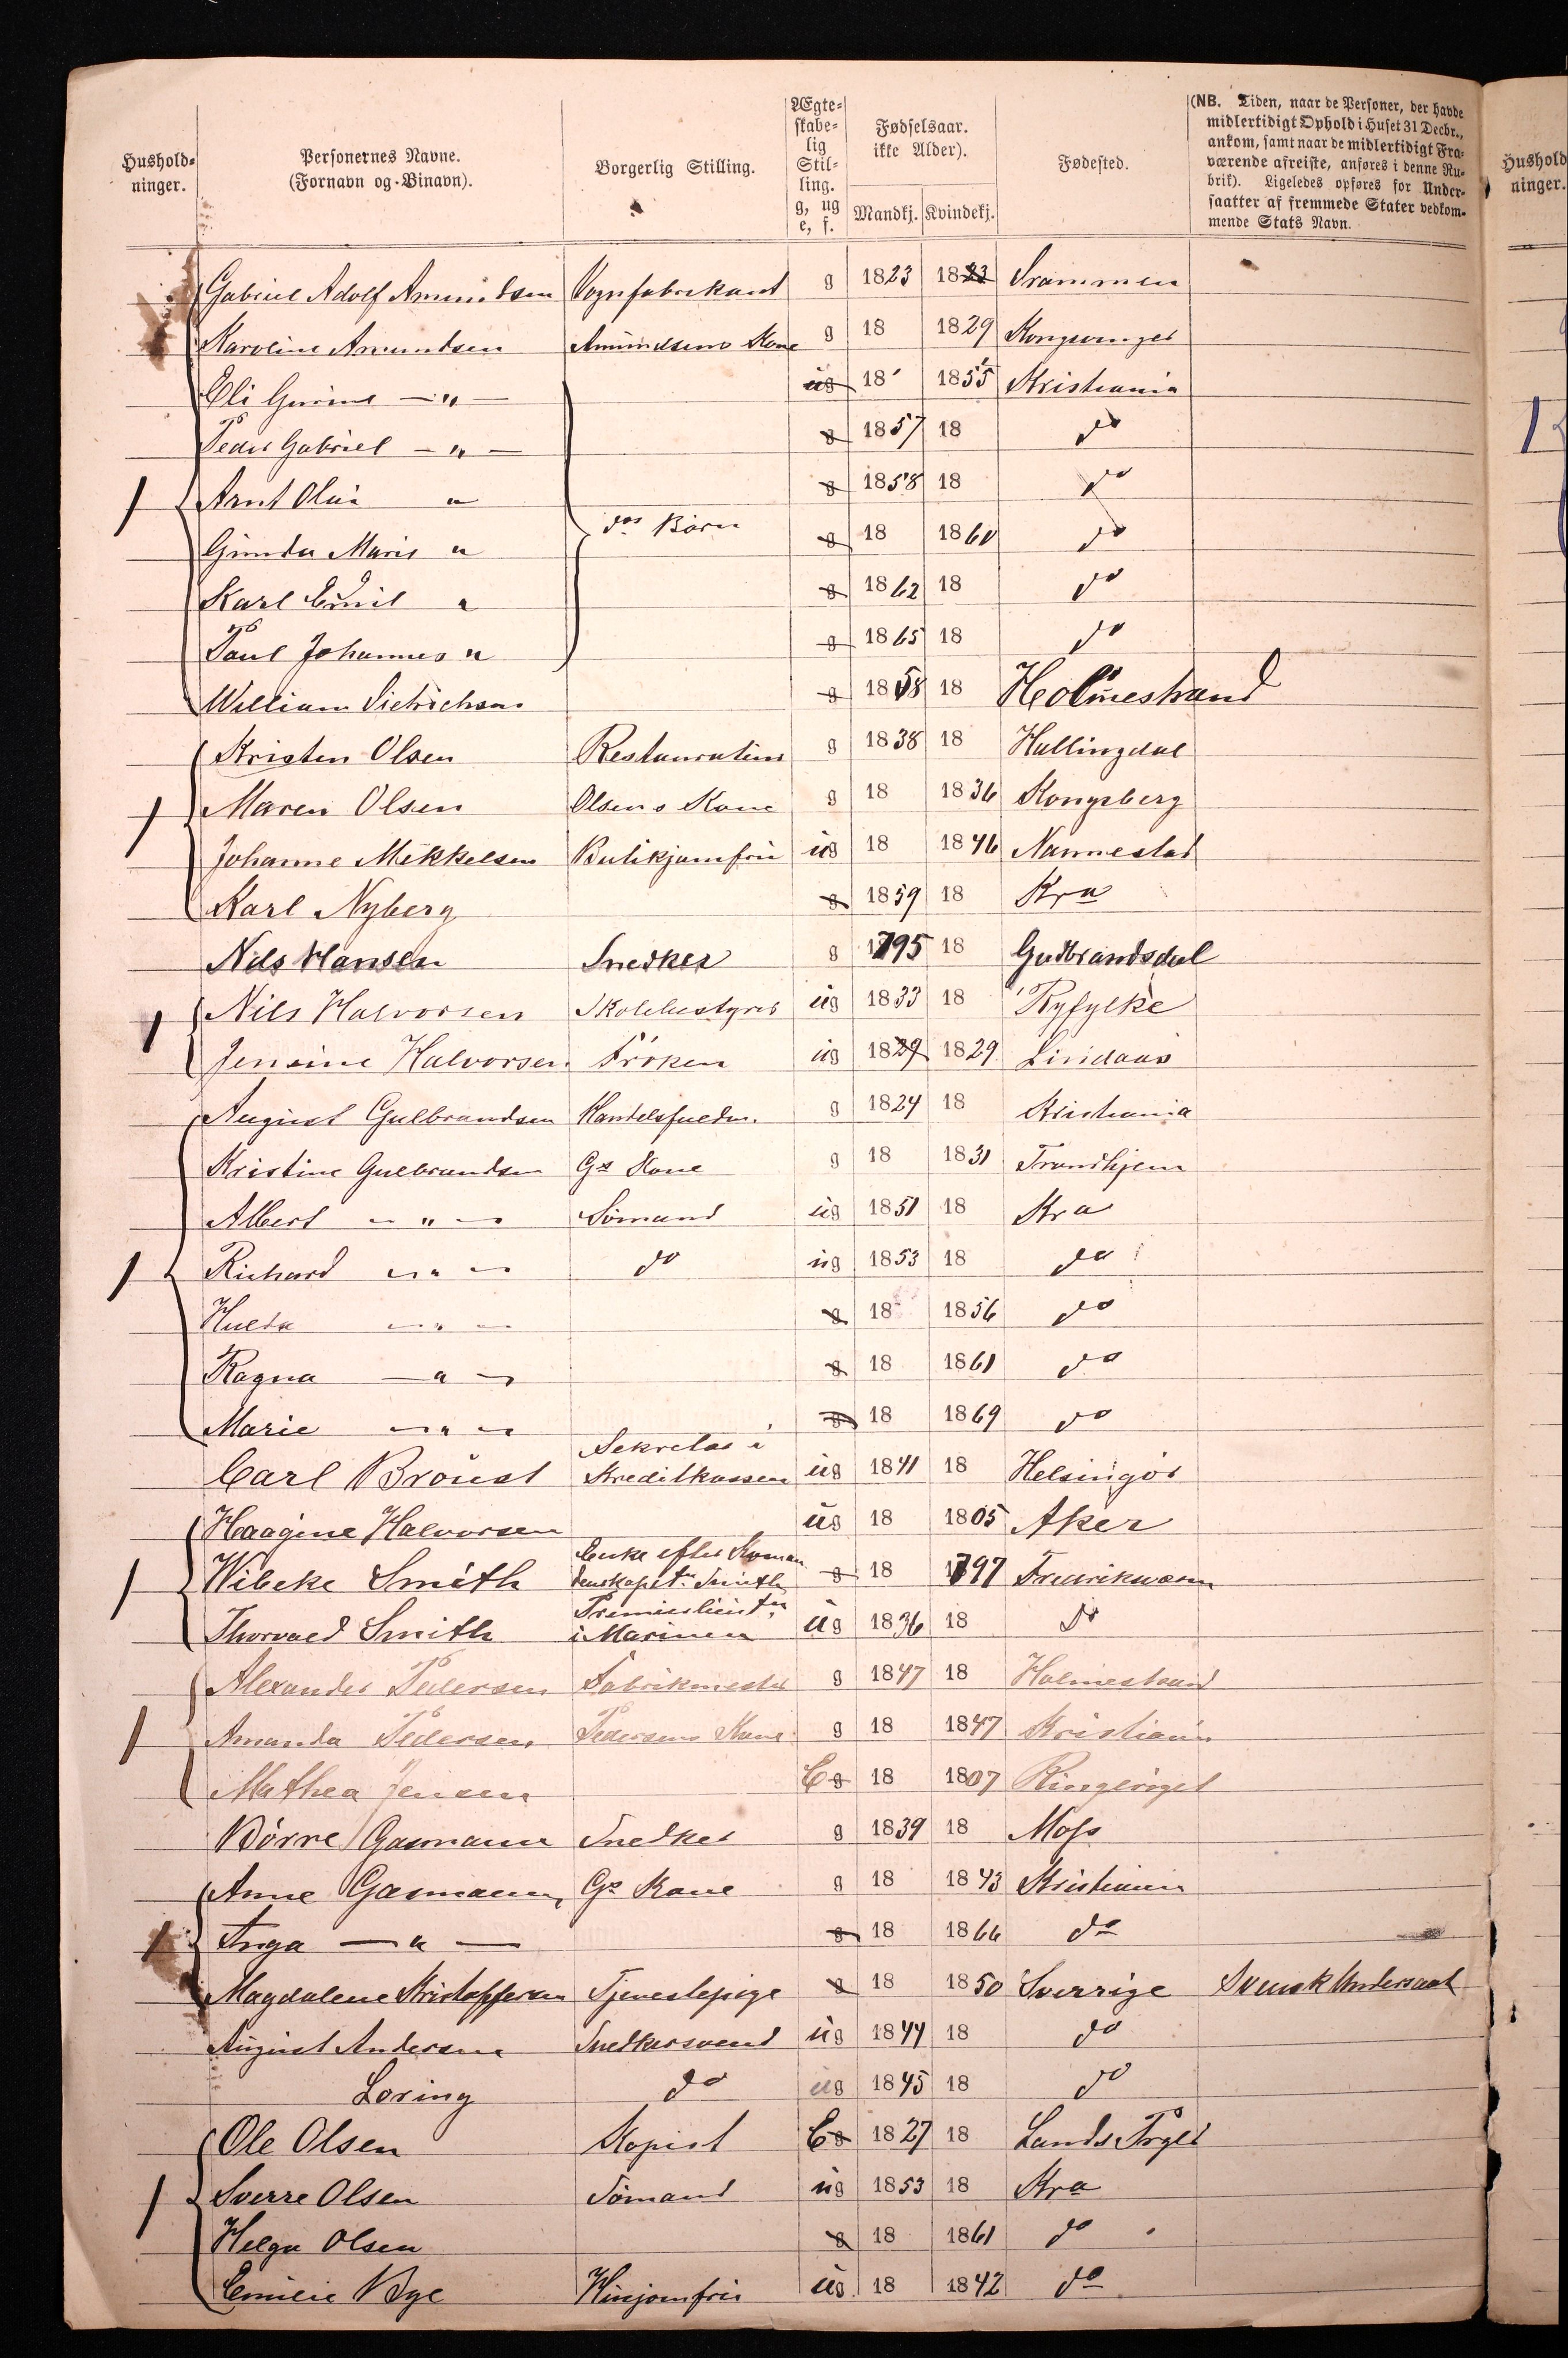 Hushold-
ninger.
Personernes Navne.
(Fornavn og Binavn).
Borgerlig Stilling.
Ægte-
skabe-
lig
Stil-
ling.
g, ug
e, f.
Fødselsaar.
ikke Alder).
Mandkj. Kvindekj.
Fødested.
(NB. Tiden, naar de Personer, der havde
midlertidigt Ophold i Huset 31 Decbr.,
ankom, samt naar de midlertidigt Fra-
værende afreiste, anføres i denne Ru-
brik). Ligeledes opføres for Under-
saatter af fremmede Stater vedkom-
mende Stats Navn.
Hushold
ninger.
Gabriel Adolf Amundsen Vognfabrikant g 1823 1823 Drammen
Karoline Amundsen Amundsens Kone g 18 1829 Kongsvinger
Eli Gurine — " — ug 18 1855 Kristiania
Peder Gabriel — " — g 1857 18 do
1 Arnt Olai " do Børn g 1858 18 do
Gunda Marie " g 18 1860 do
Karl Emil " g 1862 18 do
Paul Johannes " g 1865 18 do
William Dietrichsen g 1858 18 Holmestrand
Kristen Olsen Restauratør g 1838 18 Hallingdal
1 Maren Olsen Olsens Kone g 18 1836 Kongsberg
Johanne Mikkelsen Butikjomfru ug 18 1846 Nannestad
Karl Nyberg g 1859 18 Kra
Nils Hansen Snedker g 1795 18 Gudbrandsdal
1 Nils Halvorsen Skolebestyrer ug 1833 18 Ryfylke
Jensine Halvorsen Frøken ug 1829 1829 Lindaas
August Gulbrandsen Handelsfuldm. g 1824 18 Kristiania
Kristine Gulbrandsen Gs Kone g 18 1831 Trondhjem
Albert — " — Sømand ug 1851 18 Kra
1 Richard — " — do ug 1853 18 do
Hulda — " — g 18 1856 do
Ragna — " — g 18 1861 do
Marie — " — g 18 1869 do
Sekretær i
Carl Brøust Kreditkassen ug 1841 18 Helsingør
Haagine Halvorsen ug 18 1805 Aker
Enke efter Komman
1 Wibeke Smith dørkapt. Smith g 18 1797 Fredriksværn
Premierlieutn
Thorvald Smith i Marinen ug 1836 18 do
Alexander Pedersen Fabrikmester g 1847 18 Holmestrand
1 Amanda Pedersen Pedersens Kone g 18 1847 Kristiania
Mathea Jensen E g 18 1807 Ringeriget
Børre Gasmann Snedker g 1839 18 Moss
Anne Gasmann, Gs Kone g 18 1843 Kristiania
1 Inga — " — g 18 1866 do
Magdalene Kristoffersen Tjenestepige g 18 1850 Sverrige Svensk Undersaat
August Andersen Snedkersvend ug 1844 18 do
Loring do ug 1845 18 do
Ole Olsen Kopist E g 1827 18 Lands Prgld
1 Sverre Olsen Sømand ug 1853 18 Kra
Helga Olsen g 18 1861 do
Emilie Bye Husjomfru ug 18 1842 do